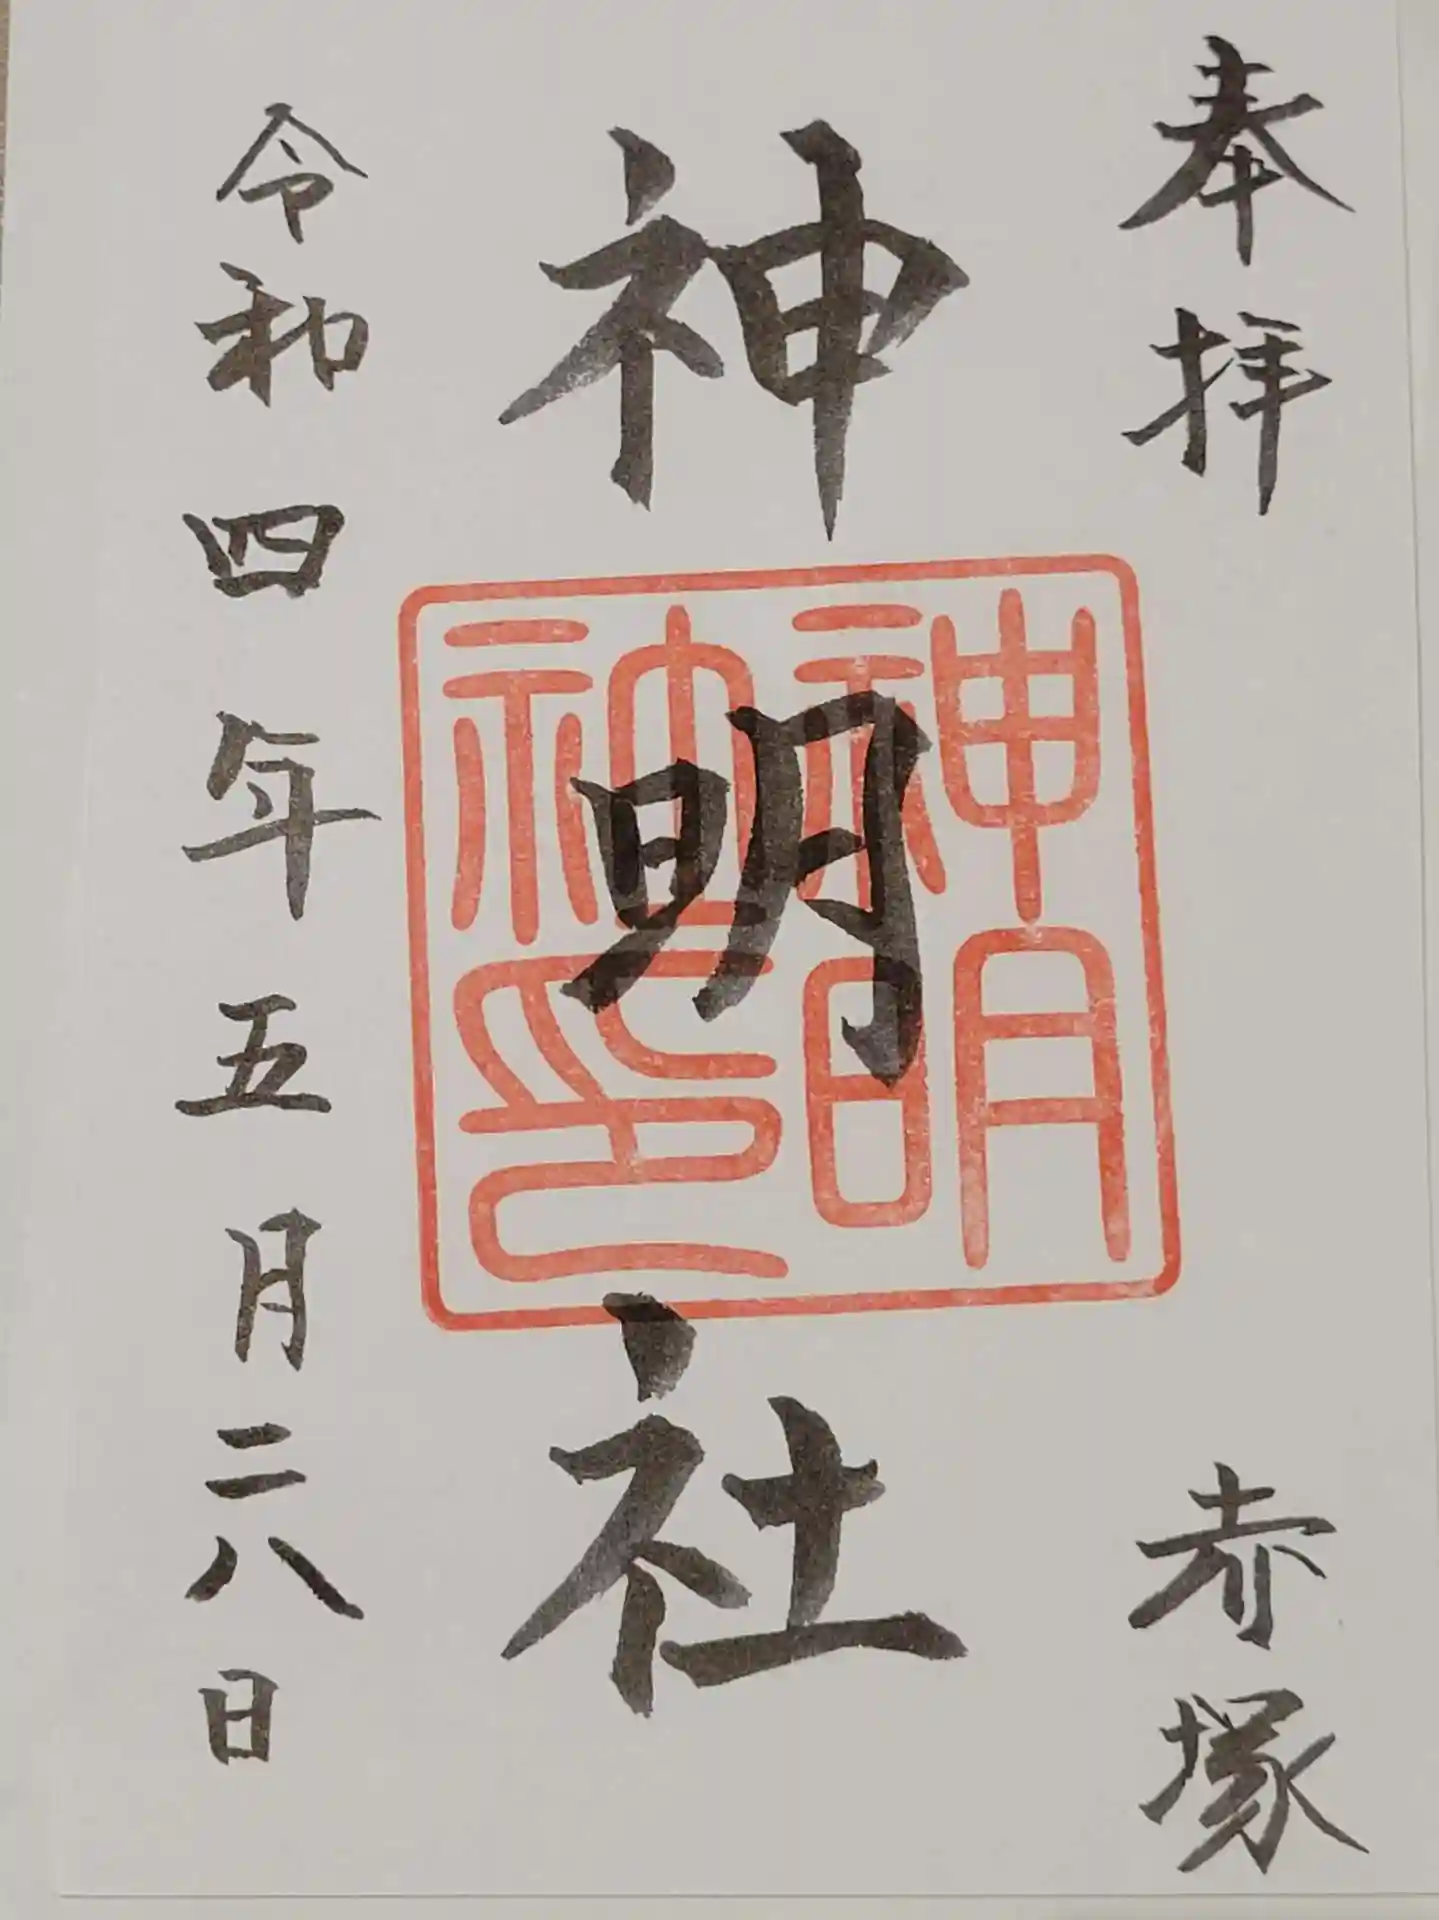 奉拝
赤塚
神明社
神明神印
令和四年五月二八日